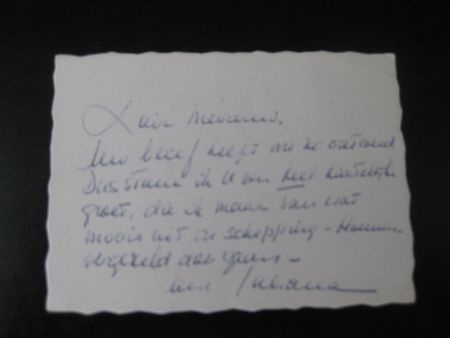 Uw brief heeft me zo ontroerd
Dus stuur ik U een heel hartelijke
groet, die ik maar van wat
moois uit de schepping -
vergezeld doe gaan -
Uw Juliana